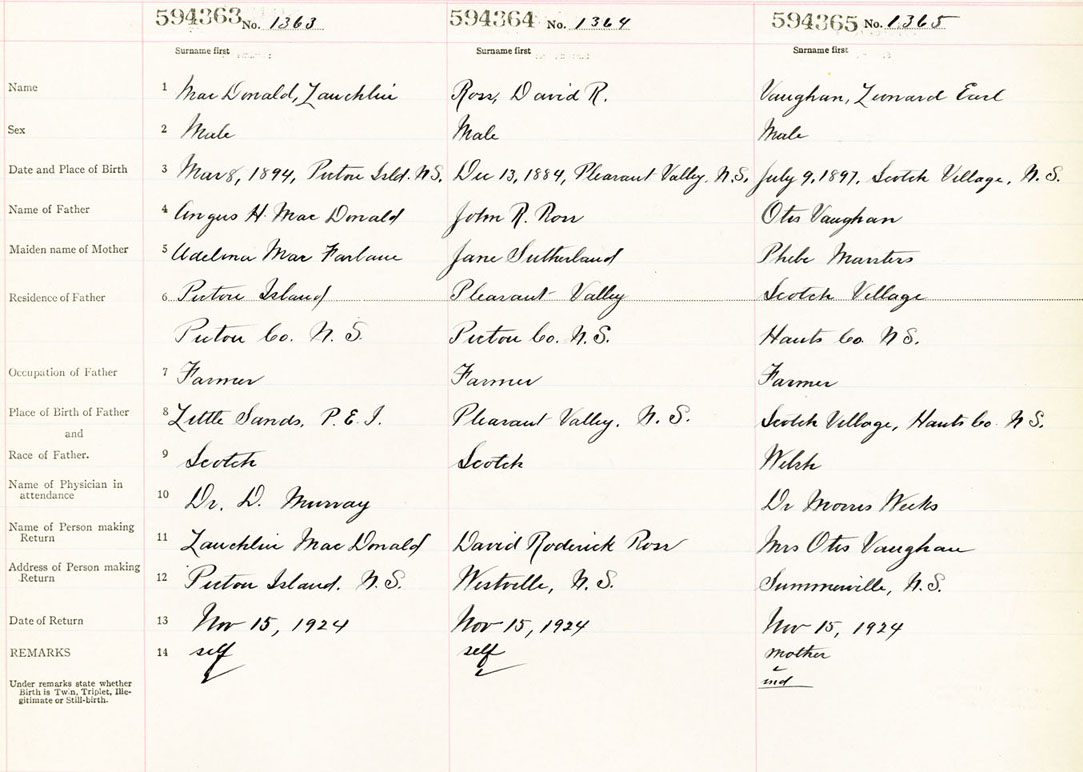 594363 No. 1363 594364 No. 1364 594365 No. 1365
Surname first Surname first Surname first
Name 1 MacDonald, Lauchlin Ross, David R. Vaughan, Leonard Earl
Sex 2 Male Male Male
Date and Place of Birth 3 Mar 8, 1894, Pictou Isld. N.S. Dec 13, 1884, Pleasant Valley, N.S. July 9, 1897, Scotch Village, N.S.
Name of Father 4 Angus H. MacDonald John R. Ross Otis Vaughan
Maiden name of Mother 5 Adelina MacFarlane Jane Sutherland Phebe Marsters
Residence of Father 6 Pictou Island Pleasant Valley Scotch Village
Pictou Co. N.S. Pictou Co. N.S. Hants Co. N.S.
Occupation of Father 7 Farmer Farmer Farmer
Place of Birth of Father 8 Little Sands, P.E.I. Pleasant Valley, N.S. Scotch Village, Hants Co. N.S.
and
Race of Father. 9 Scotch Scotch Welsh
Name of Physician in
attendance 10 Dr. D. Murray Dr Morris Weeks
Name of Person making
Return 11 Lauchlin MacDonald David Roderick Ross Mrs Otis Vaughan
Address of Person making
Return 12 Pictou Island, N.S. Westville, N.S. Summerville, N.S.
Date of Return 13 Nov 15, 1924 Nov 15, 1924 Nov 15, 1924
REMARKS 14 self self mother
Under remarks state whether
Birth is Twin, Triplet, Ille-
gitimate or Still-birth.